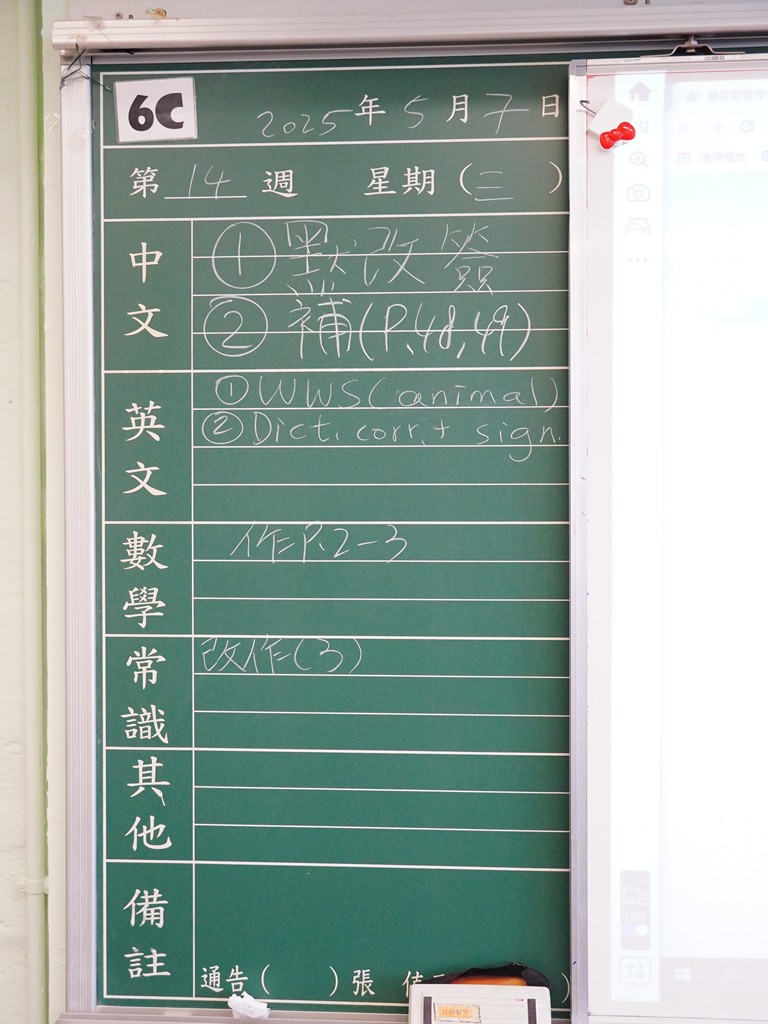 6C
2025年5月7日
第 14 週 星期(三)
中文
① 默改簽
② 補(P.48,49)
英文
① WWS(animal)
② Dict. corr. + sign.
數學
作P.2-3
常識
改作(3)
其他
備註
通告( )張